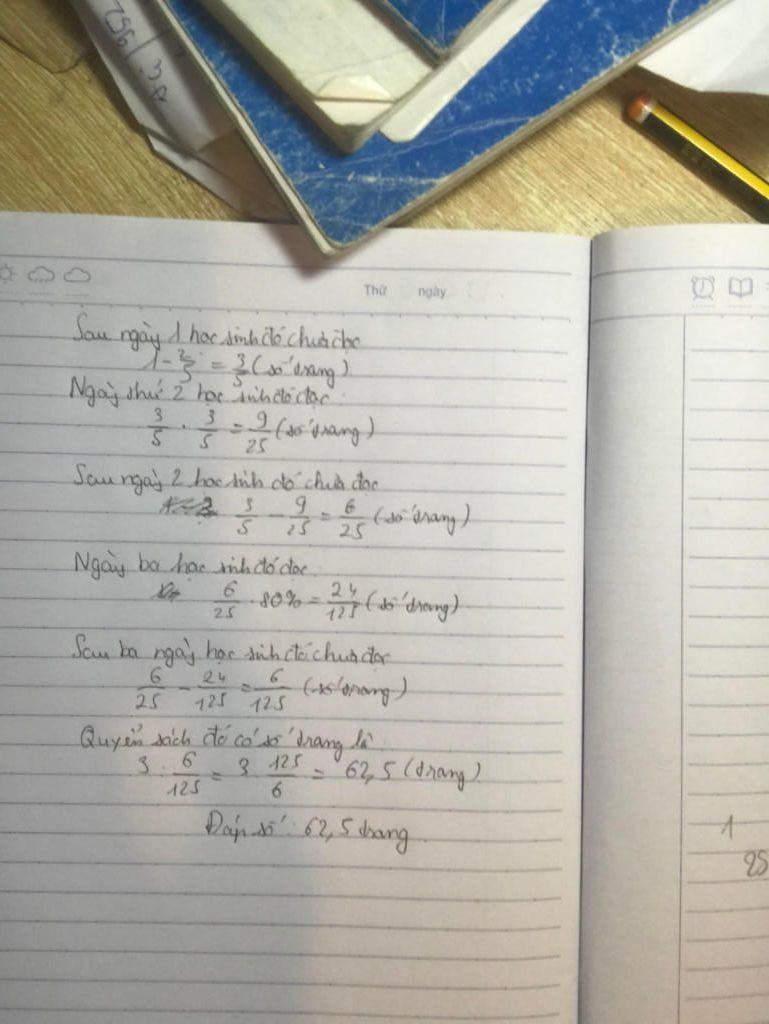 256 / 3.8
Thứ ngày
Sau ngày 1 học sinh đó chưa đọc
1 - 2/5 = 3/5 (số trang)
Ngày thứ 2 học sinh đó đọc:
3/5 . 3/5 = 9/25 (số trang)
Sau ngày 2 học sinh đó chưa đọc
3/5 - 9/25 = 6/25 (số trang)
Ngày ba học sinh đó đọc:
6/25 . 80% = 24/125 (số trang)
Sau ba ngày học sinh đó chưa đọc
6/25 - 24/125 = 6/125 (số trang)
Quyển sách đó có số trang là:
3 : 6/125 = 3 . 125/6 = 62,5 (trang)
Đáp số: 62,5 trang
1
25